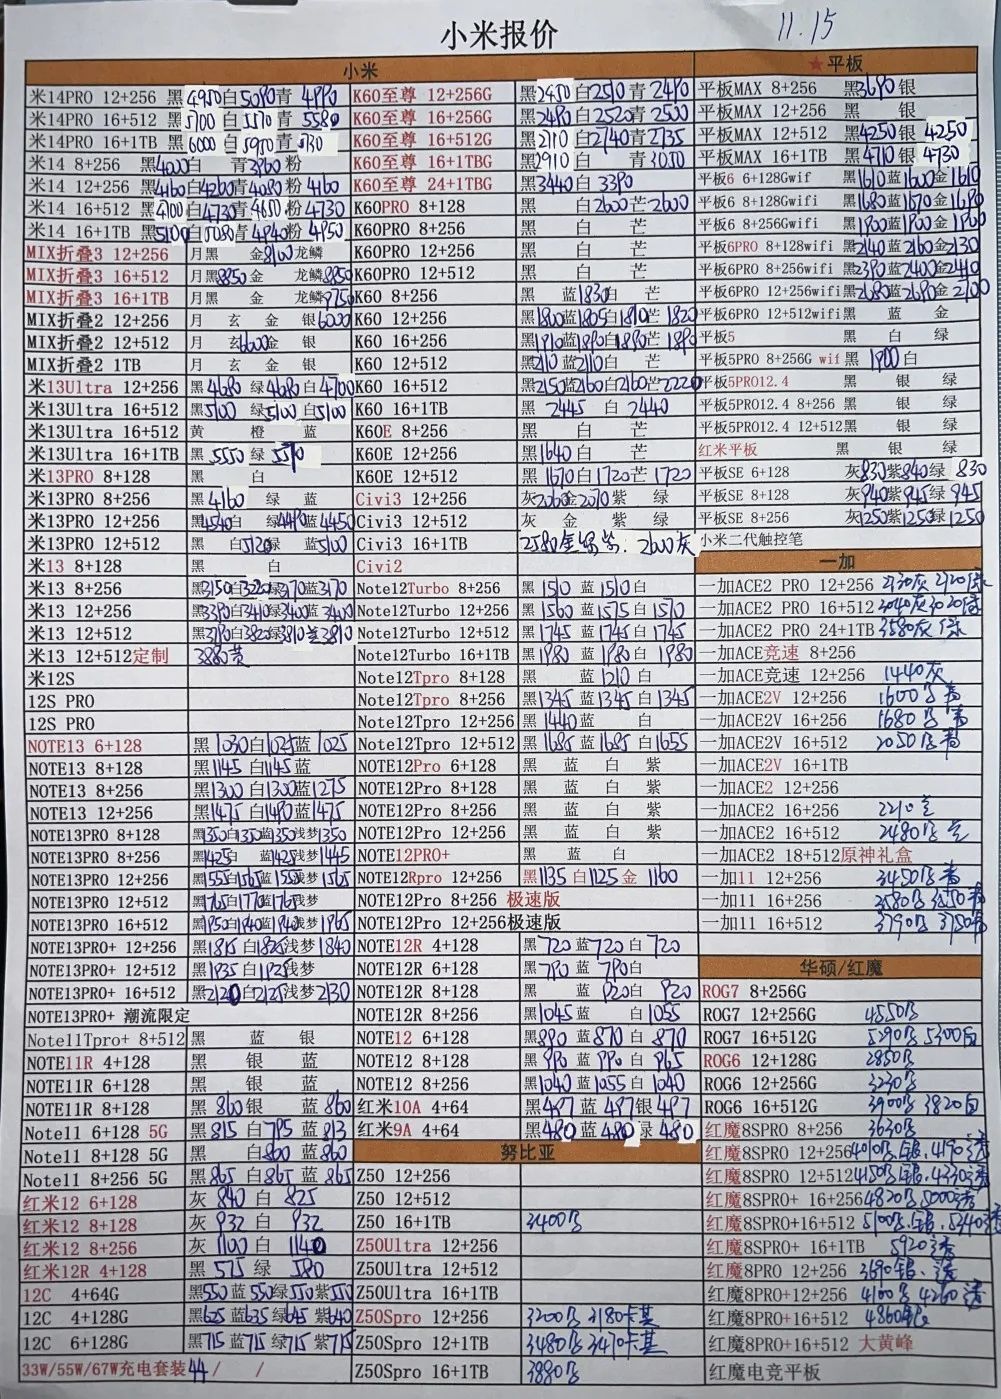 小米报价
11.15
小米
米14PRO 12+256 黑4950白5090青 4990
米14PRO 16+512 黑5700 白 5570 青 5580
米14PRO 16+1TB 黑6000 白 5950 青
米14 8+256 黑4000白 青3960粉
米14 12+256 黑4160白4260青4080粉 4160
米14 16+512 黑4700白4730青4650粉 4730
米14 16+1TB 黑5100白5080青4940粉 4950
MIX折叠3 12+256 月黑 金8100龙鳞
MIX折叠3 16+512 月黑8850金 龙鳞8850
MIX折叠3 16+1TB 月黑 金 龙鳞9750
MIX折叠2 12+256 月 玄 金 银6000
MIX折叠2 12+512 月 玄6600金 银
MIX折叠2 1TB 月 玄 金 银
米13Ultra 12+256 黑4680 绿4680白4700
米13Ultra 16+512 黑5100 绿5100白5100
米13Ultra 16+512 黄 橙 蓝
米13Ultra 16+1TB 黑5550绿5590
米13PRO 8+128 黑 白
米13PRO 8+256 黑4160 绿 蓝
米13PRO 12+256 黑4540白 绿4490蓝4450
米13PRO 12+512 黑 白5120绿 蓝5100
米13 8+128 黑 白
米13 8+256 黑3150白3220绿3170蓝3170
米13 12+256 黑3390白3410绿3400蓝3400
米13 12+512 黑3790白3820绿3810蓝3810
米13 12+512定制 3880黄
米12S
12S PRO
12S PRO
NOTE13 6+128 黑1030白1025蓝1025
NOTE13 8+128 黑1145白1145蓝
NOTE13 8+256 黑1300白1300蓝1275
NOTE13 12+256 黑1475白1490蓝1475
NOTE13PRO 8+128 黑1350白1350蓝1350浅梦1350
NOTE13PRO 8+256 黑1425白 蓝1425浅梦1445
NOTE13PRO 12+256 黑1555白1565蓝1555浅梦1565
NOTE13PRO 12+512 黑1765白1770蓝1765浅梦
NOTE13PRO 16+512 黑1950白1940蓝1940浅梦1965
NOTE13PRO+ 12+256 黑1815白1825浅梦1840
NOTE13PRO+ 12+512 黑1935白1925浅梦
NOTE13PRO+ 16+512 黑2120白2125浅梦2130
NOTE13PRO+ 潮流限定
Note11Tpro+ 8+512 黑 蓝 银
NOTE11R 4+128 黑 银 蓝
NOTE11R 6+128 黑 银 蓝
NOTE11R 8+128 黑 860银 蓝 860
Note11 6+128 5G 黑 815 白795 蓝 813
Note11 8+128 5G 黑 白800 蓝860
Note11 8+256 5G 黑 865 白865 蓝 865
红米12 6+128 灰 840 白 825
红米12 8+128 灰 932 白 932
红米12 8+256 灰 1100 白 1140
红米12R 4+128 黑 575 绿 580
12C 4+64G 黑550蓝550绿550紫550
12C 4+128G 黑625蓝635绿645紫640
12C 6+128G 黑715蓝715绿715紫715
33W/55W/67W充电套装44/ /
K60至尊 12+256G 黑2450白2510青2490
K60至尊 16+256G 黑2490白2520青2500
K60至尊 16+512G 黑2710白2740青2735
K60至尊 16+1TBG 黑2910白 青3050
K60至尊 24+1TBG 黑3440白 3390
K60PRO 8+128 黑 白2600芒2600
K60PRO 8+256 黑 白 芒
K60PRO 12+256 黑 白 芒
K60PRO 12+512 黑 白 芒
K60 8+256 黑 蓝1830白 芒
K60 12+256 黑1800蓝1805白1810芒1820
K60 16+256 黑1910蓝1890白1890芒1890
K60 12+512 黑2110蓝2110白 芒
K60 16+512 黑2150蓝2160白2160芒2220
K60 16+1TB 黑 2445 白 2440
K60E 8+256 黑 白 芒
K60E 12+256 黑1640白 芒
K60E 12+512 黑1670白1720芒1720
Civi3 12+256 灰2060金2070紫 绿
Civi3 12+512 灰 金 紫 绿
Civi3 16+1TB 2580金绿紫. 2600灰
Civi2
Note12Turbo 8+256 黑1510蓝1510白
Note12Turbo 12+256 黑1560蓝1575白1570
Note12Turbo 12+512 黑1745蓝1745白1745
Note12Turbo 16+1TB 黑1980 蓝1980白1980
Note12Tpro 8+128 黑 蓝1210白
Note12Tpro 8+256 黑1345蓝1345白1345
Note12Tpro 12+256 黑1440蓝 白
Note12Tpro 12+512 黑1685蓝1685白1655
NOTE12Pro 6+128 黑 蓝 白 紫
NOTE12Pro 8+128 黑 蓝 白 紫
NOTE12Pro 8+256 黑 蓝 白 紫
NOTE12Pro 12+256 黑 蓝 白 紫
NOTE12PRO+ 黑 蓝 白
NOTE12Rpro 12+256 黑1135白1125金 1160
NOTE12Pro 8+256 极速版
NOTE12Pro 12+256极速版
NOTE12R 4+128 黑720蓝720白 720
NOTE12R 6+128 黑790 蓝790白
NOTE12R 8+128 黑 蓝920白 920
NOTE12R 8+256 黑1045蓝 白1055
NOTE12 6+128 黑890 蓝870白 870
NOTE12 8+128 黑990 蓝990白965
NOTE12 8+256 黑1040蓝1055白1040
红米10A 4+64 黑497蓝 497银497
红米9A 4+64 黑480 蓝480绿480
努比亚
Z50 12+256
Z50 12+512
Z50 16+1TB 3400
Z50Ultra 12+256
Z50Ultra 12+512
Z50Ultra 16+1TB
Z50Spro 12+256 3200 3180卡其
Z50Spro 12+1TB 3480 3470卡其
Z50Spro 16+1TB 3880
★平板
平板MAX 8+256 黑3690银
平板MAX 12+256 黑 银
平板MAX 12+512 黑4250银 4250
平板MAX 16+1TB 黑4710银 4730
平板6 6+128Gwif 黑1610蓝1600金1610
平板6 8+128Gwifi 黑1680蓝1670金1690
平板6 8+256Gwifi 黑1900蓝1900金1900
平板6PRO 8+128wifi 黑2140蓝2160金2130
平板6PRO 8+256wifi 黑2390蓝2400金2440
平板6PRO 12+256wifi黑2680蓝2690金2700
平板6PRO 12+512wifi黑 蓝 金
平板5 黑 白 绿
平板5PRO 8+256G wif 黑 1900白
平板5PRO12.4 黑 银 绿
平板5PRO12.4 8+256 黑 银 绿
平板5PRO12.4 12+512黑 银 绿
红米平板 黑 银 绿
平板SE 6+128 灰830紫840绿 830
平板SE 8+128 灰940紫945绿 945
平板SE 8+256 灰1250紫1250绿1250
小米二代触控笔
一加
一加ACE2 PRO 12+256 2730灰 2720绿
一加ACE2 PRO 16+512 3040灰3020绿
一加ACE2 PRO 24+1TB 3580灰 绿
一加ACE竞速 8+256
一加ACE竞速 12+256 1440灰
一加ACE2V 12+256 1600 青
一加ACE2V 16+256 1680 青
一加ACE2V 16+512 2050 青
一加ACE2V 16+1TB
一加ACE2 12+256
一加ACE2 16+256 2210
一加ACE2 16+512 2480
一加ACE2 18+512原神礼盒
一加11 12+256 3450 青
一加11 16+256 3580
一加11 16+512 3790 3750
华硕/红魔
ROG7 8+256G
ROG7 12+256G 4550
ROG7 16+512G 5290 5300白
ROG6 12+128G 2850
ROG6 12+256G 3230
ROG6 16+512G 3900 3820白
红魔8SPRO 8+256 3630
红魔8SPRO 12+256 4010 银. 4190透
红魔8SPRO 12+512 4150 银. 4330透
红魔8SPRO+ 16+256 4820 5000透
红魔8SPRO+16+512 5100 银. 5340透
红魔8SPRO+ 16+1TB 5920透
红魔8PRO 12+256 3690银、透
红魔8PRO+12+256 4100 4260透
红魔8PRO+16+512 4860
红魔8PRO+16+512 大黄峰
红魔电竞平板